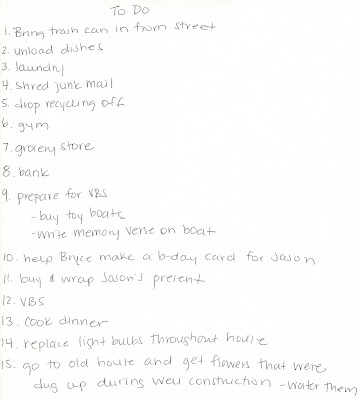 To Do
1. Bring trash can in from street
2. unload dishes
3. laundry
4. shred junk mail
5. drop recycling off
6. gym
7. grocery store
8. bank
9. prepare for VBS
- buy toy boats
- write memory verse on boat
10. help Bryce make a b-day card for Jason
11. buy & wrap Jason's present
12. VBS
13. cook dinner
14. replace light bulbs throughout house
15. go to old house and get flowers that were
dug up during well construction - water them